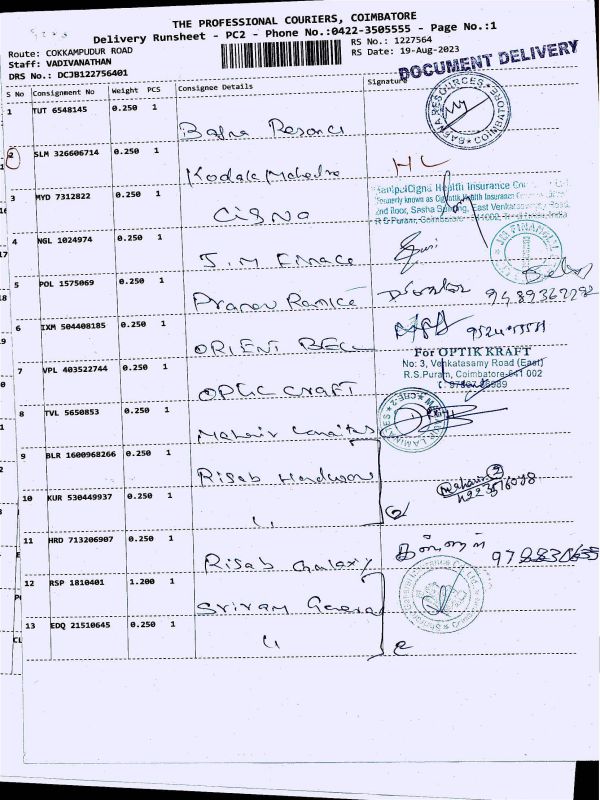 THE PROFESSIONAL COURIERS, COIMBATORE
Delivery Runsheet - PC2 - Phone No.:0422-3505555 - Page No.:1
Route: COKKAMPUDUR ROAD
RS No.: 1227564
Staff: VADIVANATHAN
RS Date: 19-Aug-2023
DRS No.: DCJB122756401
DOCUMENT DELIVERY
S No Consignment No Weight PCS Consignee Details Signature
1 TUT 6548145 0.250 1
Bafna Resorces
BAFNA RESOURCES COIMBATORE
2 SLM 326606714 0.250 1
Kodak Mahedra HC
3 MYD 7312822 0.250 1
Cigna
ManipalCigna Health Insurance
2nd floor, Sesha East Venkatasamy Road
R S Puram, Coimbatore - 641002, India
4 NGL 1024974 0.250 1
J.M Finace
JM FINANCIAL
5 POL 1575069 0.250 1
Pranav Ramice
6 IXM 504408185 0.250 1
ORIENT BELL
7 VPL 403522744 0.250 1
OPTIC CRAFT
For OPTIK KRAFT
No: 3, Venkatasamy Road (East)
R.S.Puram, Coimbatore-641 002
8 TVL 5650853 0.250 1
LAMINATES
9 BLR 1600968266 0.250 1
Risab Hardware
10 KUR 530449937 0.250 1
11
2
11 HRD 713206907 0.250 1
Risab Galaxy
12 RSP 1810401 1.200 1
Sriram General
13 EDQ 21510645 0.250 1
11
2